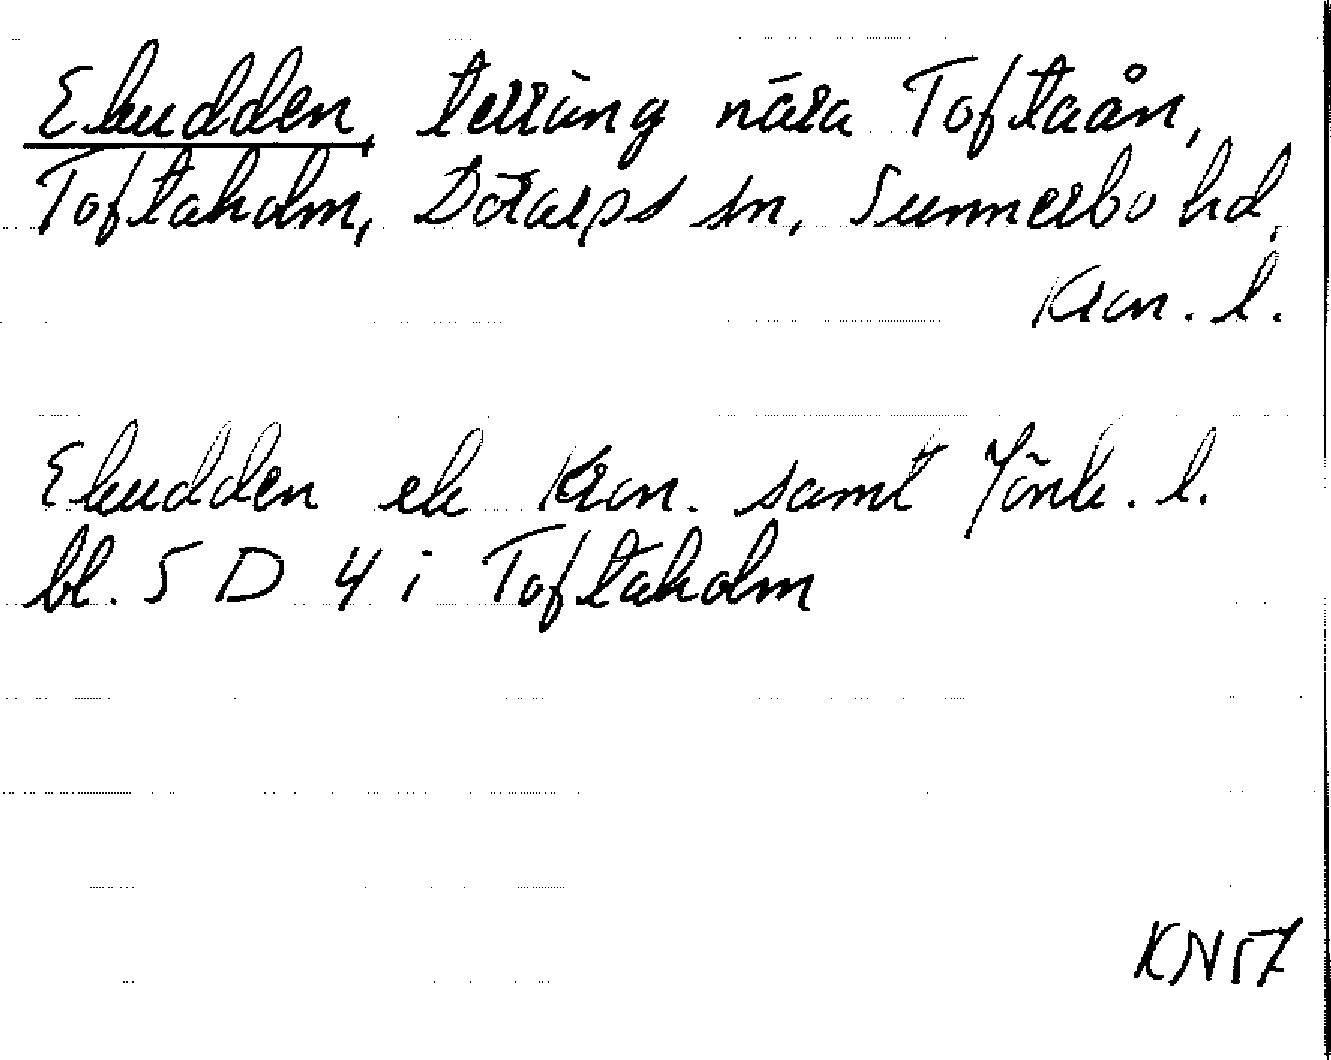 Ekudden, terräng nära Toftaån,
Toftaholm, Dörarps sn, Sunnerbo hd,
Kron. l.
Ekudden ek Kron. samt Jönk. l.
bl. 5 D 4 i Toftaholm
KN57